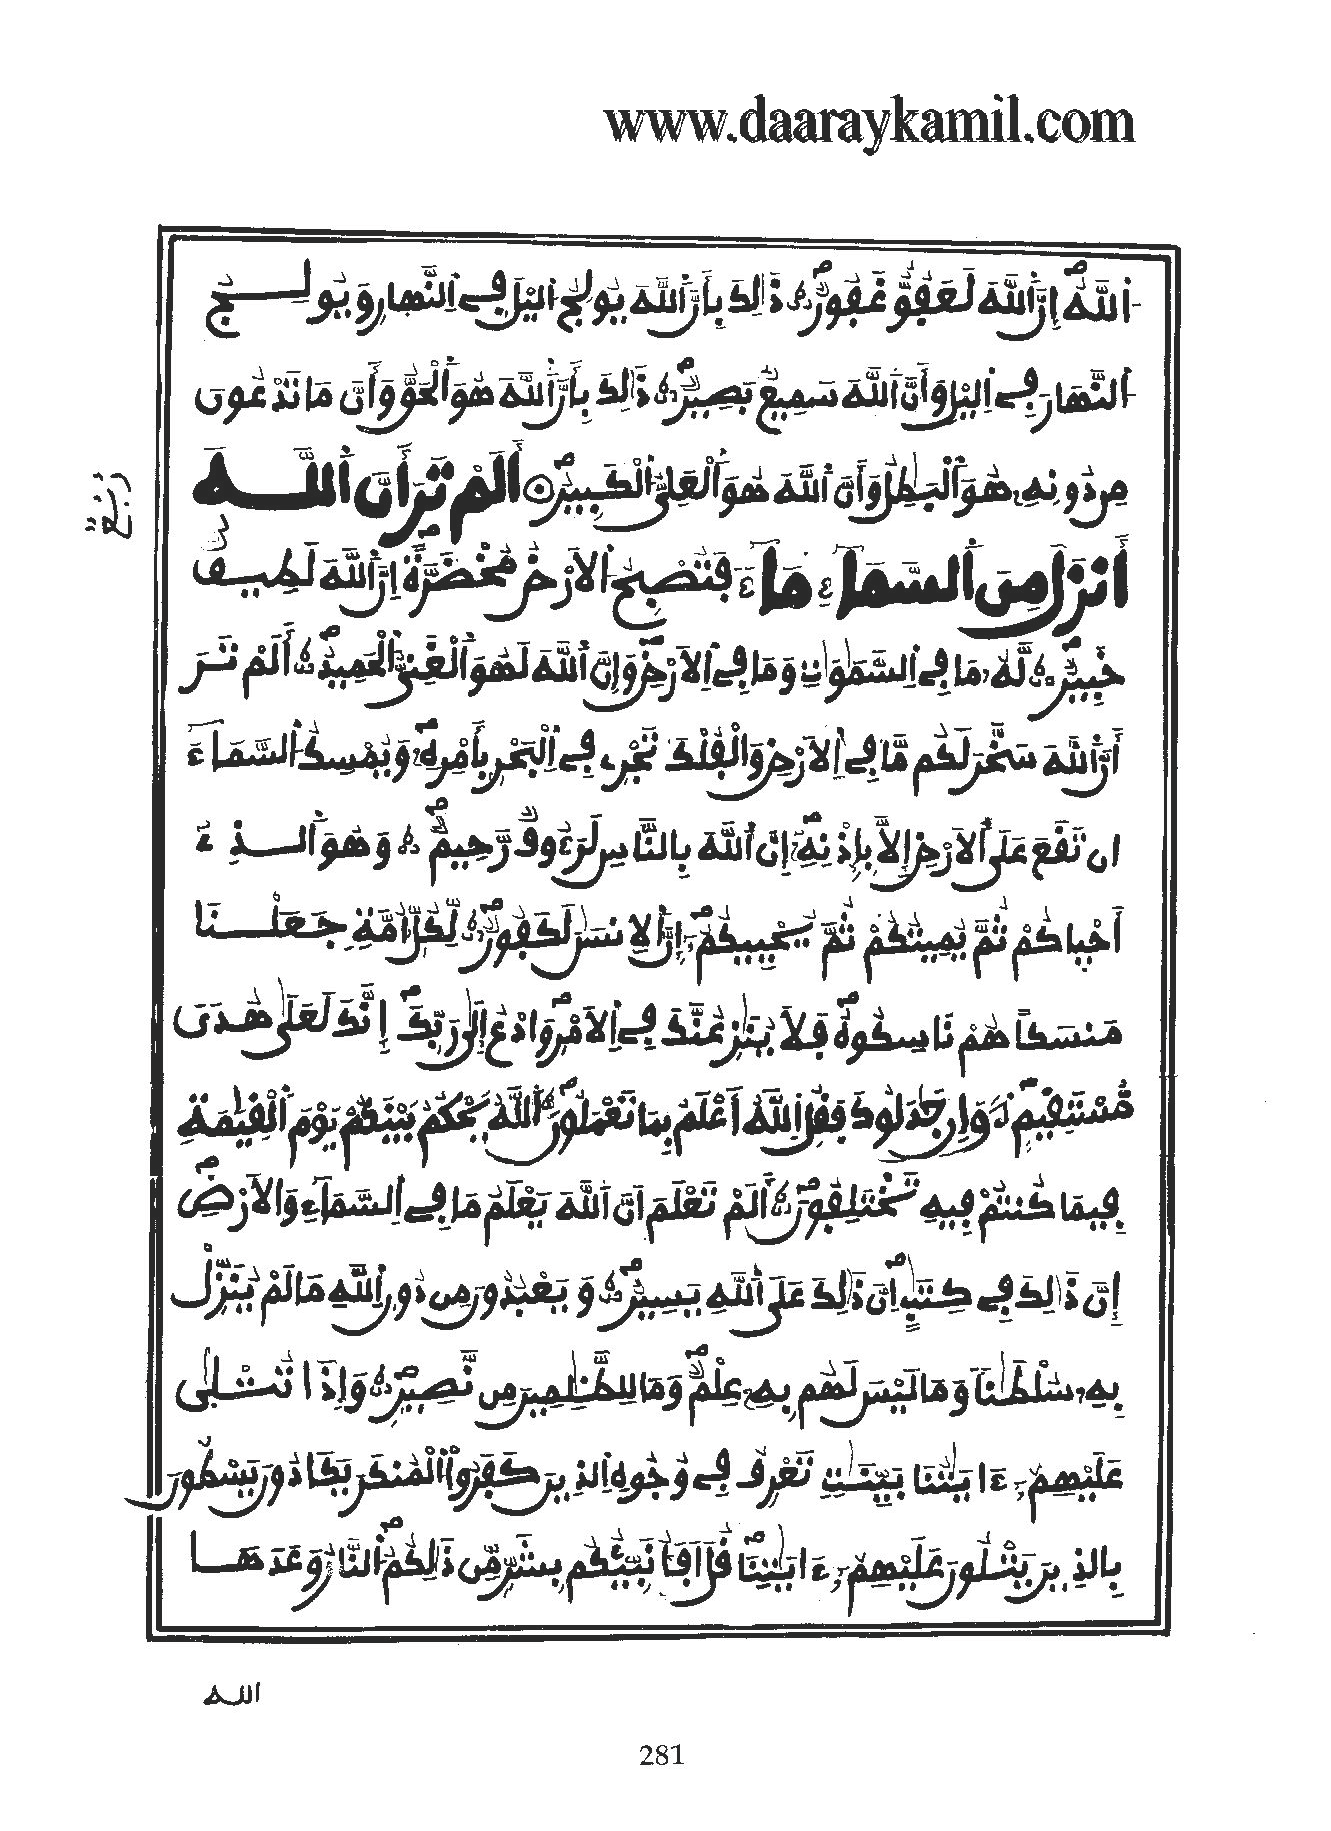 www.daaraykamil.com
اَللَّهُ إِنَّ اَللَّهَ لَعَفُوٌّ غَفُورٌ ذَالِكَ بِأَنَّ اَللَّهَ يُولِجُ اَليْلَ فِي اِلنَّهارِ وَيُولِجُ
اَلنَّهارَ فِي اِليْلِ وَأَنَّ اَللَّهَ سَمِيعٌ بَصِيرٌ ذَالِكَ بِأَنَّ اَللَّهَ هُوَ اَلْحَقُّ وَأَنَّ مَا تَدْعُونَ
مِن دُونِهِ هُوَ اَلْبَطِلُ وَأَنَّ اَللَّهَ هُوَ اَلْعَلِيُّ اَلْكَبِيرُ أَلَمْ تَرَ أَنَّ اَللَّهَ
رُبُعٌ
أَنزَلَ مِنَ اَلسَّمَاءِ مَاءً فَتُصْبِحُ اَلاَرْضُ مُخْضَرَّةً إِنَّ اَللَّهَ لَطِيفٌ
خَبِيرٌ لَّهُ مَا فِي اِلسَّمَوَاتِ وَمَا فِي اِلاَرْضِ وَإِنَّ اَللَّهَ لَهُوَ اَلْغَنِيُّ اَلْحَمِيدُ أَلَمْ تَرَ
أَنَّ اَللَّهَ سَخَّرَ لَكُم مَّا فِي اِلاَرْضِ وَالْفُلْكَ تَجْرِي فِي اِلْبَحْرِ بِأَمْرِهِ وَيُمْسِكُ اَلسَّمَآءَ
ان تَقَعَ عَلَى اَلاَرْضِ إِلاَّ بِإِذْنِهِ إِنَّ اَللَّهَ بِالنَّاسِ لَرَءُوفٌ رَّحِيمٌ وَهُوَ اَلذِے
أَحْياكُمْ ثُمَّ يُمِيتُكُمْ ثُمَّ يُحْيِيكُمُ إِنَّ اَلاِنسَنَ لَكَفُورٌ لِّكُلِّ أُمَّةٍ جَعَلْنَا
مَنسَكاً هُمْ نَاسِكُوهُ فَلاَ يُنَزِعُنَّكَ فِي اِلاَمْرِ وَادْعُ إِلَى رَبِّكَ إِنَّكَ لَعَلَى هُدًى
مُّسْتَقِيمٍ وَإِن جَدَلُوكَ فَقُلِ اِللَّهُ أَعْلَمُ بِمَا تَعْمَلُونَ اَللَّهُ يَحْكُمُ بَيْنَكُمْ يَوْمَ اَلْقِيَمَةِ
فِيمَا كُنتُمْ فِيهِ تَخْتَلِفُونَ أَلَمْ تَعْلَمَ اَنَّ اَللَّهَ يَعْلَمُ مَا فِي اِلسَّمَآءِ وَالاَرْضِ
إِنَّ ذَالِكَ فِي كِتَبٍ اِنَّ ذَالِكَ عَلَى اَللَّهِ يَسِيرٌ وَيَعْبُدُونَ مِن دُونِ اِللَّهِ مَا لَمْ يُنَزِّلْ
بِهِ سُلْطَناً وَمَا لَيْسَ لَهُم بِهِ عِلْمٌ وَمَا لِلظَّلِمِينَ مِن نَّصِيرٍ وَإِذَا تُتْلَى
عَلَيْهِمُ ءَايَتُنَا بَيِّنَتٍ تَعْرِفُ فِي وُجُوهِ اِلذِينَ كَفَرُواْ اَلْمُنكَرَ يَكَادُونَ يَسْطُونَ
بِالذِينَ يَتْلُونَ عَلَيْهِمُ ءَايَتِنَا قُلَ اَفَأُنَبِّئُكُم بِشَرٍّ مِّن ذَلِكُمُ اَلنَّارُ وَعَدَهَا
الله
281